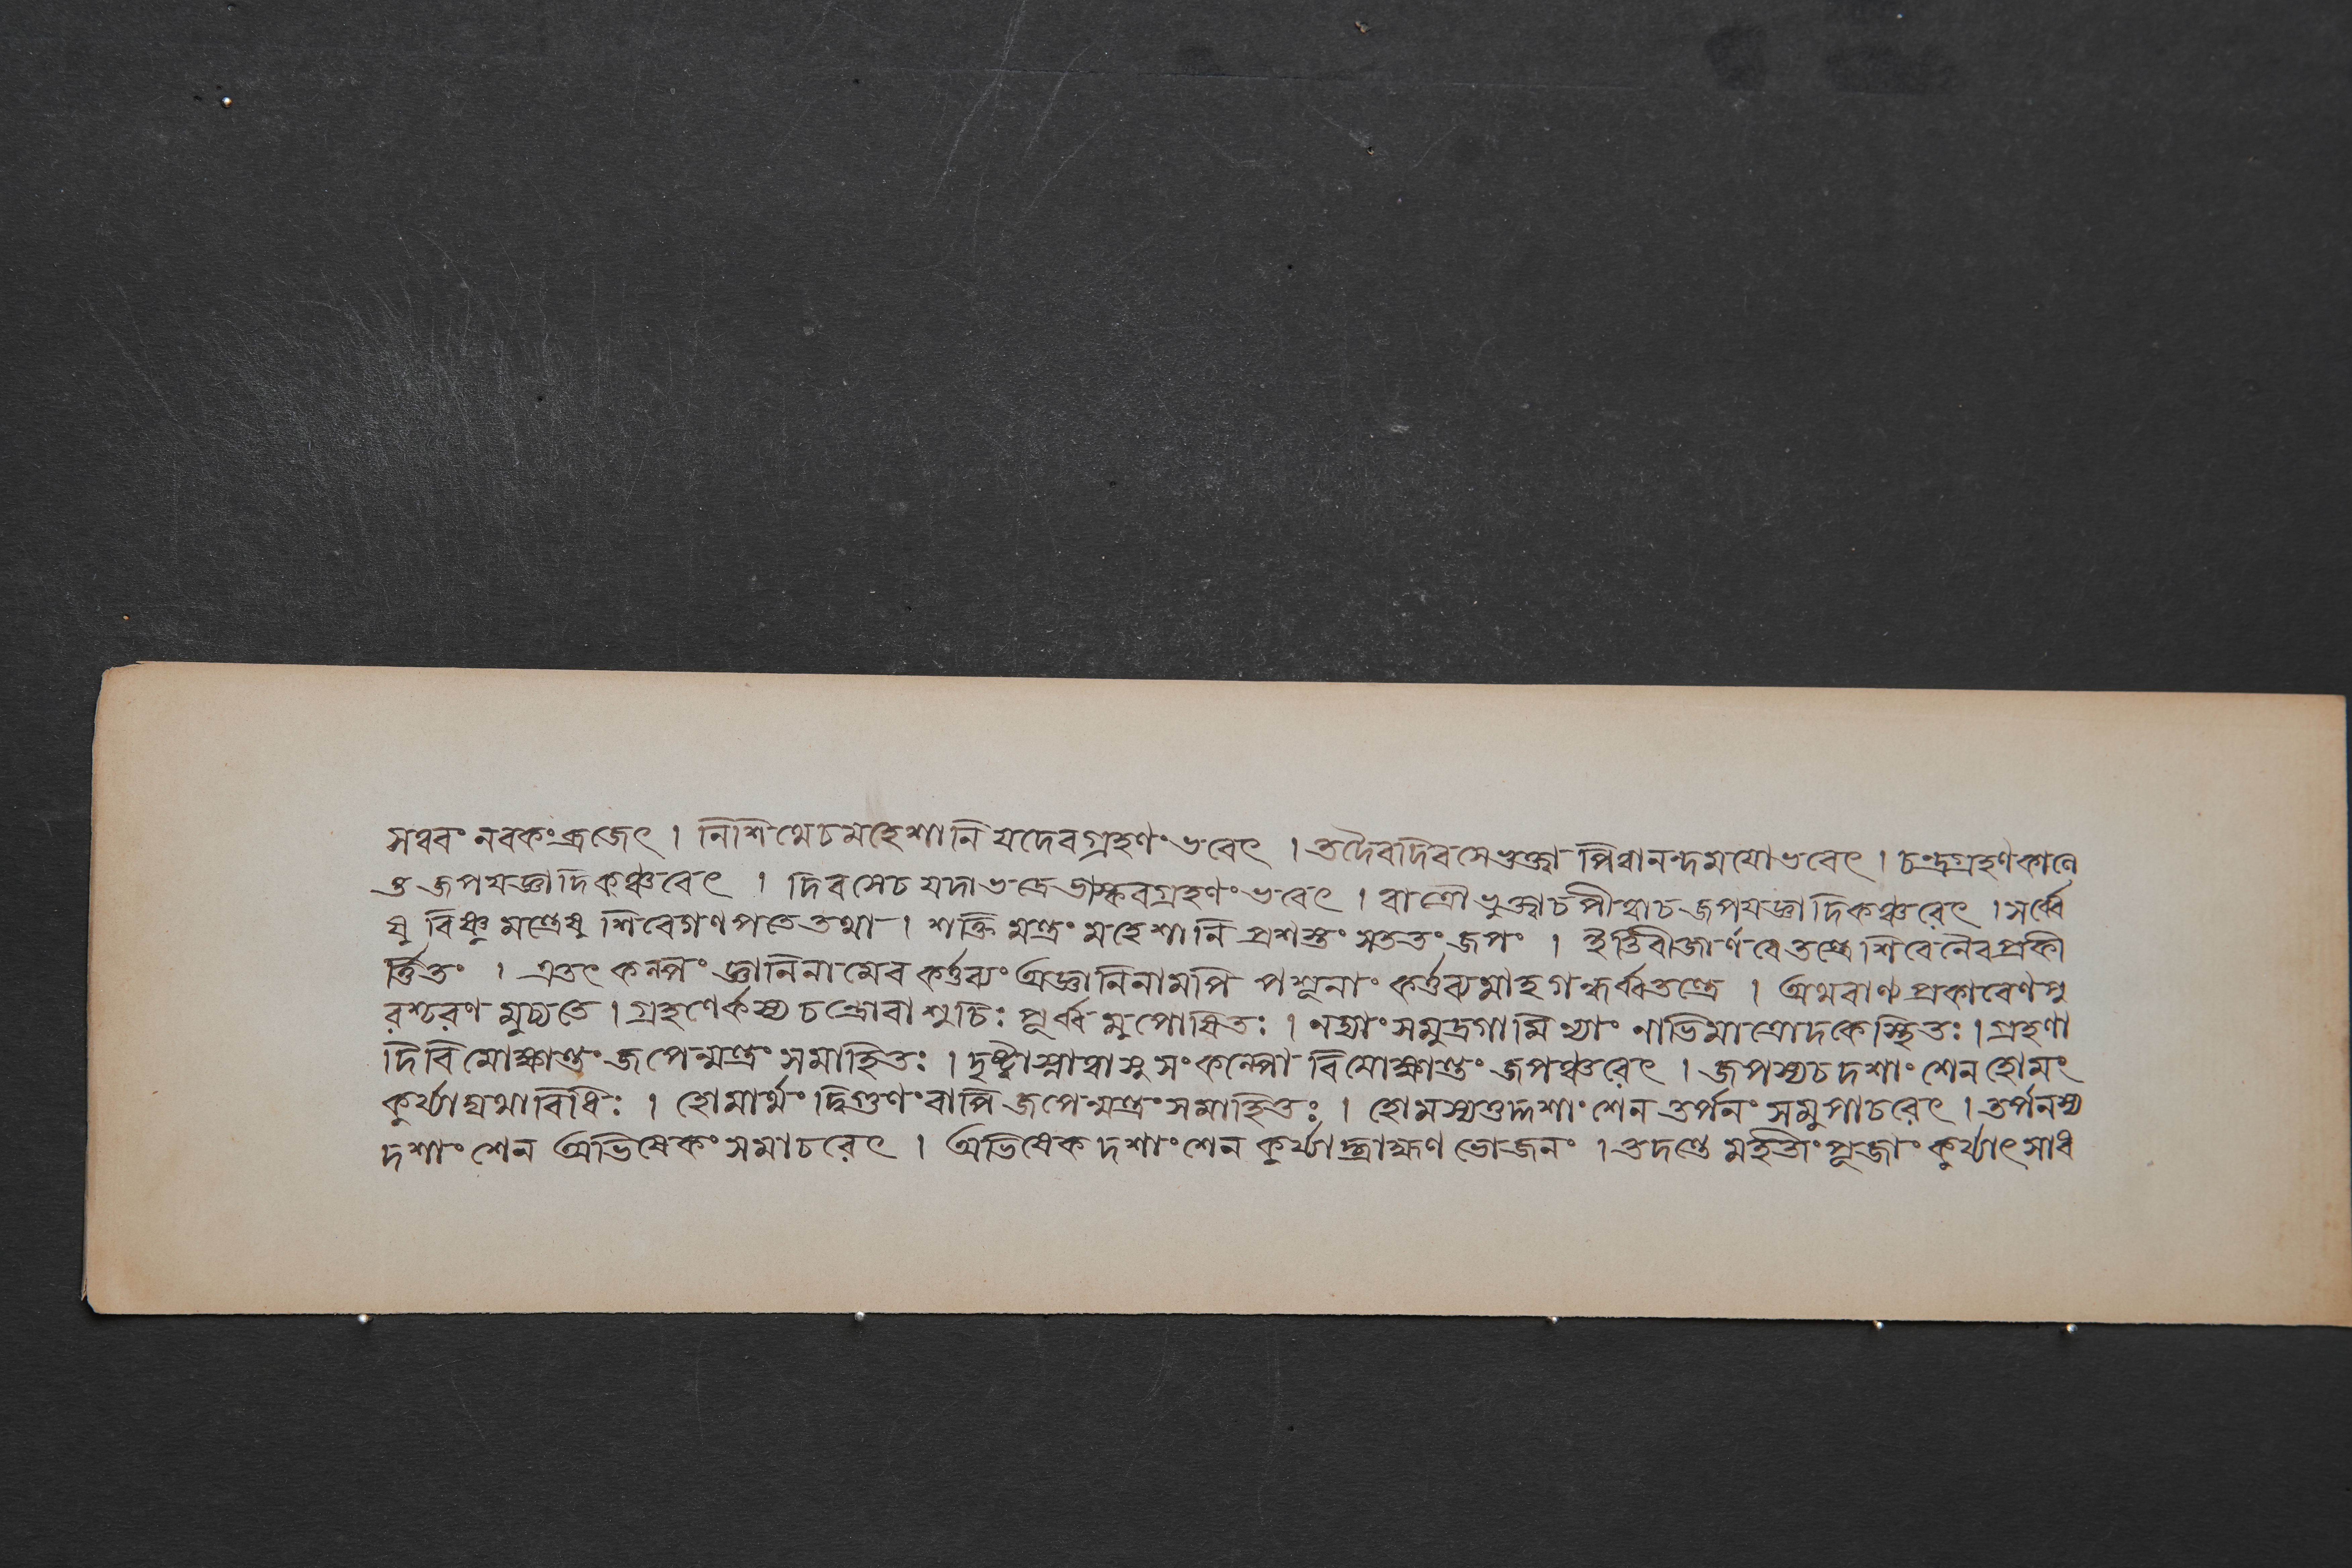 সত্বরং নরকং ব্রজেৎ । নিশিথেচমহেশানি যদেবগ্রহণং ভবেৎ । তদৈবদিবসেভুক্ত্বা পিত্বানন্দময়োভবেৎ । চন্দ্রগ্রহণকালে
তু জপযজ্ঞাদিকঞ্চরেৎ । দিবসেচ যদাভদ্রে ভাস্করগ্রহণং ভবেৎ । রাত্রৌ ভুক্ত্বাচপীত্বাচ জপযজ্ঞাদিকঞ্চরেৎ । সর্ব্বে
ষু বিষ্ণুমন্ত্রেষু শিবেগণপতেতথা । শক্তি মন্ত্রং মহেশানি প্রশস্তং সততং জপং । ইত্তিবীজার্ণবেতন্ত্রে শিবেনৈবপ্রকী
র্ত্তিতং । এতৎ কল্পং জ্ঞানিনামেব কর্ত্তব্যং অজ্ঞানিনামপি পশূনাং কর্ত্তব্যমাহ গন্ধর্ব্বতন্ত্রে । অথবাণ্য প্রকারেণপু
রশ্চরণ মুচ্যতে । গ্রহণের্কস্য চন্দ্রোবা শুচিঃ পূর্ব্ব মুপোষিতঃ । নদ্যাং সমুদ্রগামিণ্যাং নাভিমাত্রোদকেস্থিতঃ । গ্রহণা
দিবিমোক্ষান্তং জপেন্মন্ত্রং সমাহিতঃ । দৃষ্ট্বাস্নাত্বাসু সংকল্পো বিমোক্ষান্তং জপঞ্চরেৎ । জপস্যচ দশাংশেন হোমং
কুর্য্যাদ্যথাবিধিঃ । হোমার্থং দ্বিগুণংবাপি জপেন্মন্ত্রং সমাহিতঃ । হোমস্যতুদ্দশাংশেন তর্পনং সমুপাচরেৎ । তর্পনস্য
দশাংশেন অভিষেকং সমাচরেৎ । অভিষেক দশাংশেন কুর্য্যাদ্ব্রাহ্মণ ভোজনং । তদন্তে মহতিংপূজাং কুর্য্যাৎ সাধ